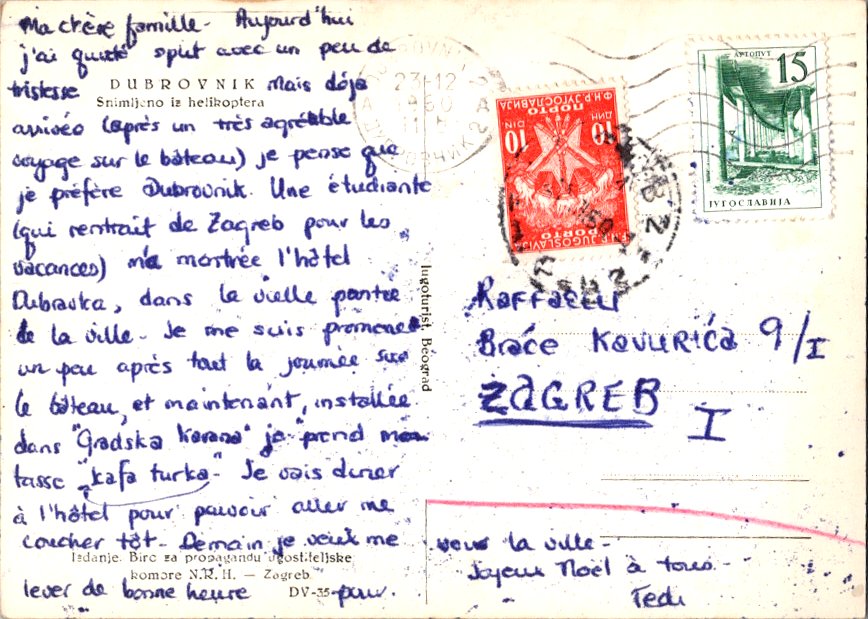 Ma chère famille - Aujourd'hui
j'ai quitté Split avec un peu de
tristesse Mais déjà
DUBROVNIK
Snimljeno iz helikoptera
arrivée (après un très agréable
voyage sur le bâteau) je pense que
je préfère Dubrovnik. Une étudiante
(qui rentrait de Zagreb pour les
vacances) m'a montrée l'hôtel
Dubravka, dans la vielle partie
de la ville - Je me suis promenée
un peu après tout la journée sur
le bâteau, et maintenant, installée
dans "Gradska Kavana" je prend ma
tasse "kafa turka" - Je vais diner
à l'hôtel pour pouvoir aller me
coucher tôt - Demain je veux me
Izdanje. Biro za propagandu ugostiteljske
komore N.R.H. — Zagreb
lever de bonne heure pour
DV-35
Jugoturist, Beograd
23-12
1960
ДИН 10
10 DIN
ПОРТО
Ф.Н.Р. ЈУГОСЛАВИЈА
F.N.R. JUGOSLAVIJA
PORTO
АУТОПУТ 15
ЈУГОСЛАВИЈА
Raffaelli
Braće Kavurića 9/I
ZAGREB
I
voir la ville -
Joyeux Noël à tous -
Tedi